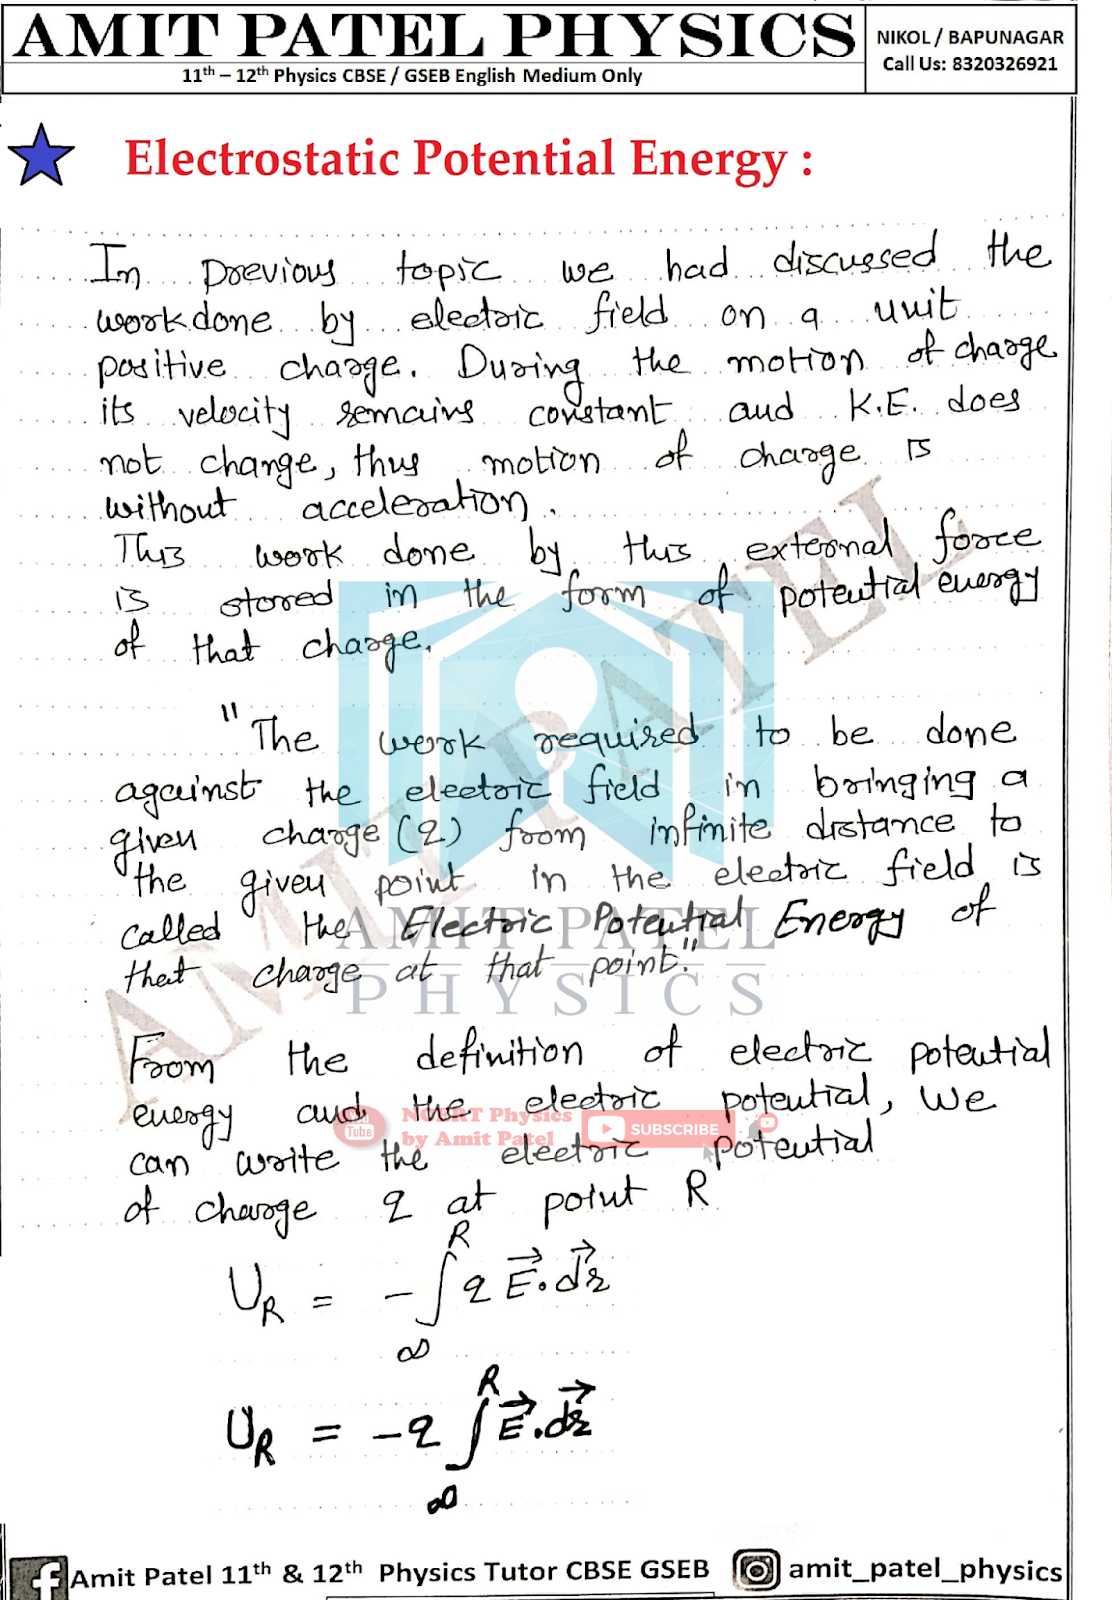 AMIT PATEL PHYSICS
11th – 12th Physics CBSE / GSEB English Medium Only
NIKOL / BAPUNAGAR
Call Us: 8320326921
Electrostatic Potential Energy :
In previous topic we had discussed the
workdone by electric field on a unit
positive charge. During the motion of charge
its velocity remains constant and K.E. does
not change, thus motion of charge is
without acceleration.
This work done by this external force
is stored in the form of potential energy
of that charge.
"The work required to be done
against the electric field in bringing a
given charge (q) from infinite distance to
the given point in the electric field is
called the Electric Potential Energy of
that charge at that point."
From the definition of electric potential
energy and the electric potential, we
can write the electric potential
of charge q at point R
U_R = - ∫_∞^R q E⃗ . dr⃗
U_R = -q ∫_∞^R E⃗ . dr⃗
AMIT PATEL
AMIT PATEL
PHYSICS
You Tube
NCERT Physics
by Amit Patel
SUBSCRIBE
Amit Patel 11th & 12th Physics Tutor CBSE GSEB
amit_patel_physics